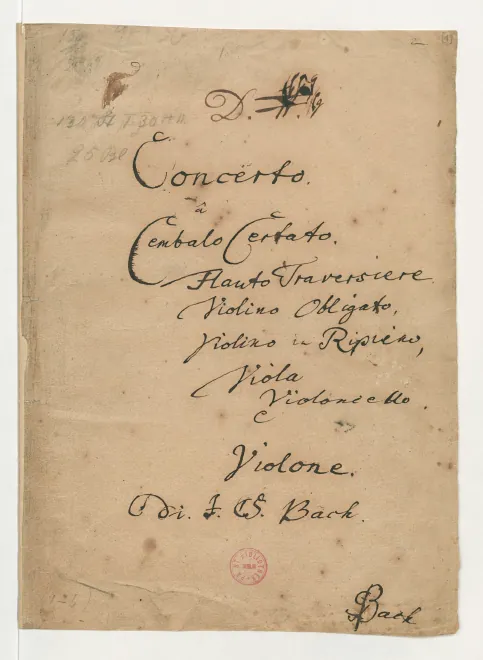 D. #.
Concerto.
â
Cembalo Certato.
Flauto Traversiere
Violino Obligato,
Violino in Ripieno,
Viola
e Violoncello.
Violone.
Di. J. S. Bach.
Bach